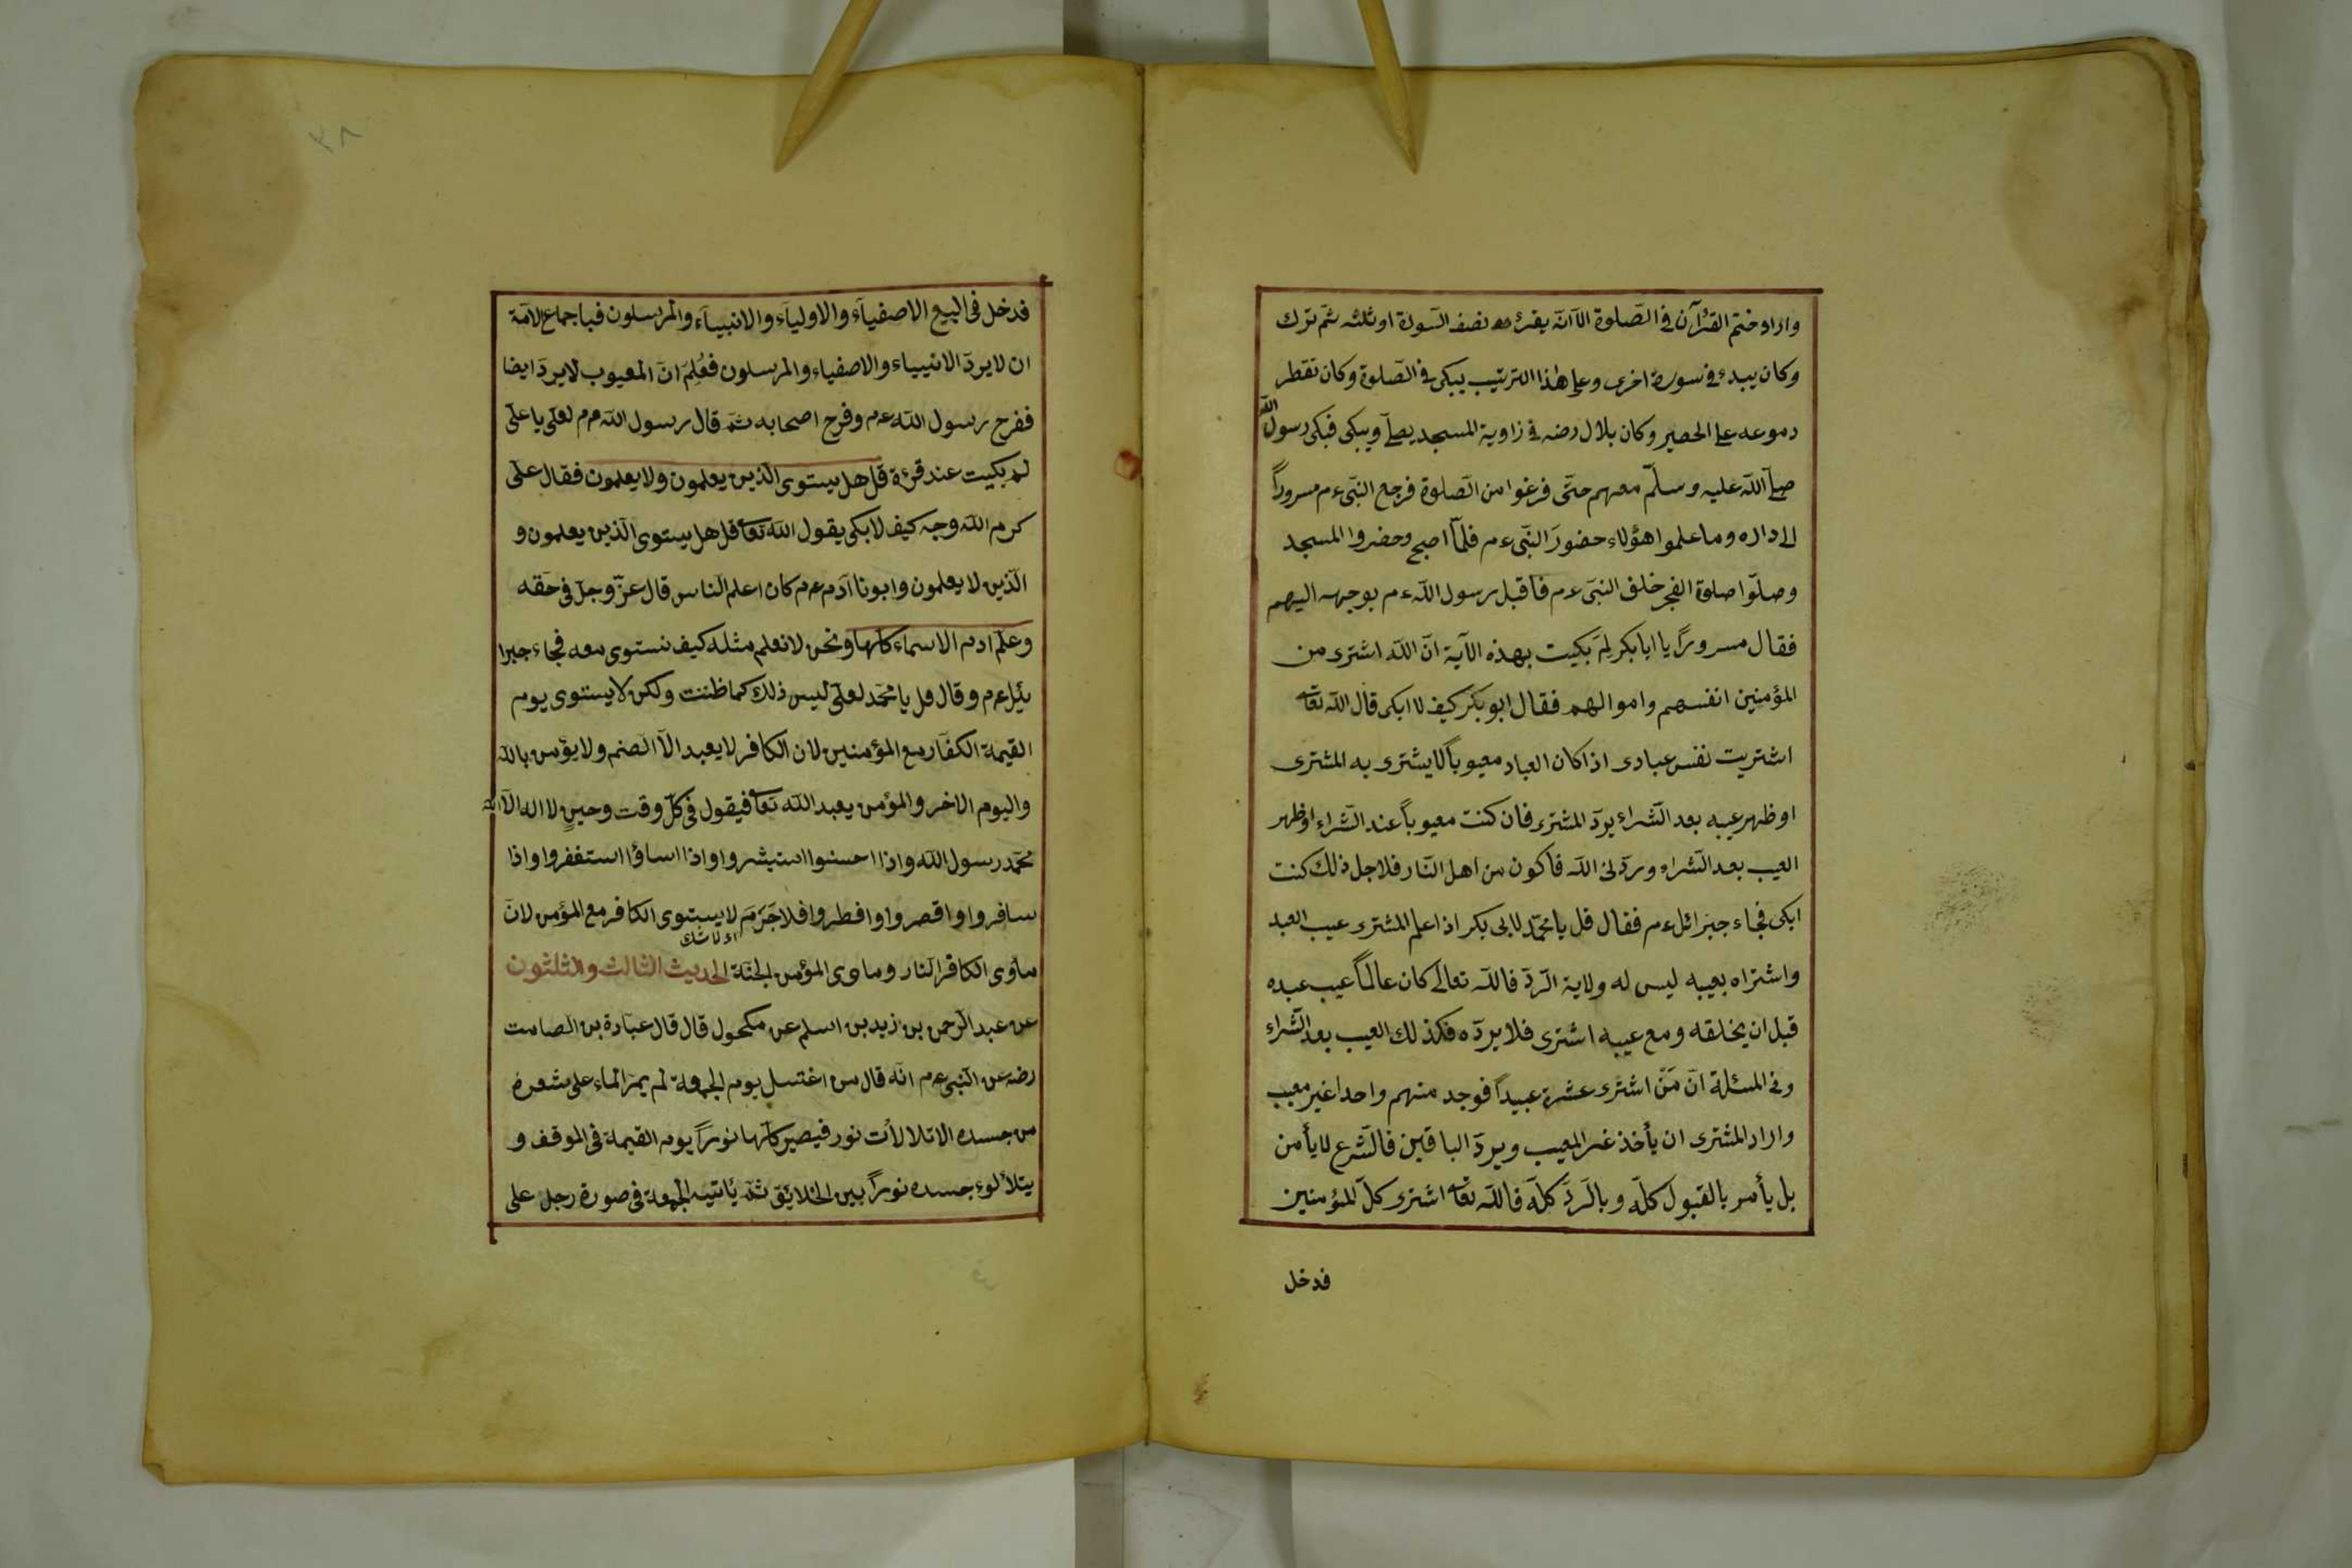 واراد ختم القرآن في الصّلوة الّا انّه يقرء نصف السّورة او ثلثه ثمّ ترك
وكان يبدء في سورة اخرى وعلى هٰذا الترتيب يبكى في الصّلوة وكان تقطر
دموعه على الحصير وكان بلال رضه في زاوية المسجد يصلّى ويبكى فبكى رسول الله
صلّى اللّه عليه وسلّم معهم حتّى فرغوا من الصّلوة فرجع النبّى ءم مسروراً
الى داره وما علموا هؤلاء حضورَ النبّى ءم فلمّا اصبح وحضروا المسجد
وصلّوا صلوة الفجر خلف النبّى ءم فاقبل رسول اللّه ءم بوجهه اليهم
فقال مسروراً يا ابا بكر لِمَ بكيت بهذه الآية انّ اللّه اشترى من
المؤمنين انفسهم واموالهم فقال ابو بكر كيف لا ابكى قال اللّه تعا
اشتريت نفس عبادى اذا كان العباد معيوباً لا يشترى به المشترى
او ظهر عيبه بعد الشّراء يردّ المشترى فان كنت معيوباً عند الشّراء او ظهر
العيب بعد الشّراء وردّنى اللّه فاكون من اهل النّار فلاجل ذلك كنت
ابكى فجاء جبرائل ءم فقال قل يا محمّد لابى بكر اذا علم المشترى عيب العبد
واشتراه بعيبه ليس له ولاية الرّدّ فاللّه تعالى كان عالماً عيب عبده
قبل ان يخلقه ومع عيبه اشترى فلا يردّه فكذلك العيب بعد الشّراء
وفى المسئلة انّ مَنّ اشترى عشرة عبيداً فوجد منهم واحدا غير معيب
واراد المشترى ان يأخذ غير المعيب ويردّ الباقين فالشّرع لا يأمن
بل يأمر بالقبول كلّه وبالرّدّ كلّه فاللّه تعا اشترى كلّ المؤمنين
فدخل
٣٨
فدخل فى البيع الاصفيآء والاوليآء والانبيآء والمرسلون فباجماع الامّة
ان لا يردّ الانبيياء والاصفياء والمرسلون فعُلِمَ انّ المعيوب لا يردّ ايضا
ففرح رسول اللّه ءم وفرح اصحابه ثمّ قال رسول اللّه ءم لعلى يا على
لم بكيت عند قرءة قل هل يستوى الّذين يعلمون ولا يعلمون فقال على
كرم اللّه وجه كيف لا ابكى يقول اللّه تعا قل هل يستوى الّذين يعلمون و
الّذين لا يعلمون وابونا آدم ءم كان اعلم النّاس قال عزّ وجلّ فى حَقه
وعلّم ادم الاسماء كلّها ونحن لا نعلم مثله كيف نستوى معه فجاء جبرا
ئيل ءم وقال قل يا محمّد لعلى ليس ذلك كما ظننت ولكن لا يستوى يوم
القيمة الكفّار مع المؤمنين لان الكافر لا يعبد الّا الصنم ولا يؤمن باللّه
واليوم الاخر والمؤمن يعبد اللّه تعا فيقول فى كلّ وقت وحينٍ لا اله الّا الله
محمّد رسول اللّه واذا احسنوا استبشروا واذا اساؤا استغفروا واذا
سافروا واقصروا وافطروا فلا جَرَمَ لا يستوى الكافر مع المؤمن لانّ
اى لا شك
مأوى الكافر النّار ومأوى المؤمن الجنّة الحديث الثالث والثلثون
عن عبد الرّحمن بن زيد بن اسلم عن مكحول قال قال عبادة بن الصامت
رضه عن النّبى ءم انّه قال من اغتسل يوم الجمعة لم يمرّ الماء على شعرة
من جسده الا تلالأت نور فيصير كلّها نوراً يوم القيمة فى الموقف و
يتلألوء جسده نوراً بين الخلائق ثمّ يأتيه الجمعة فى صورة رجل على